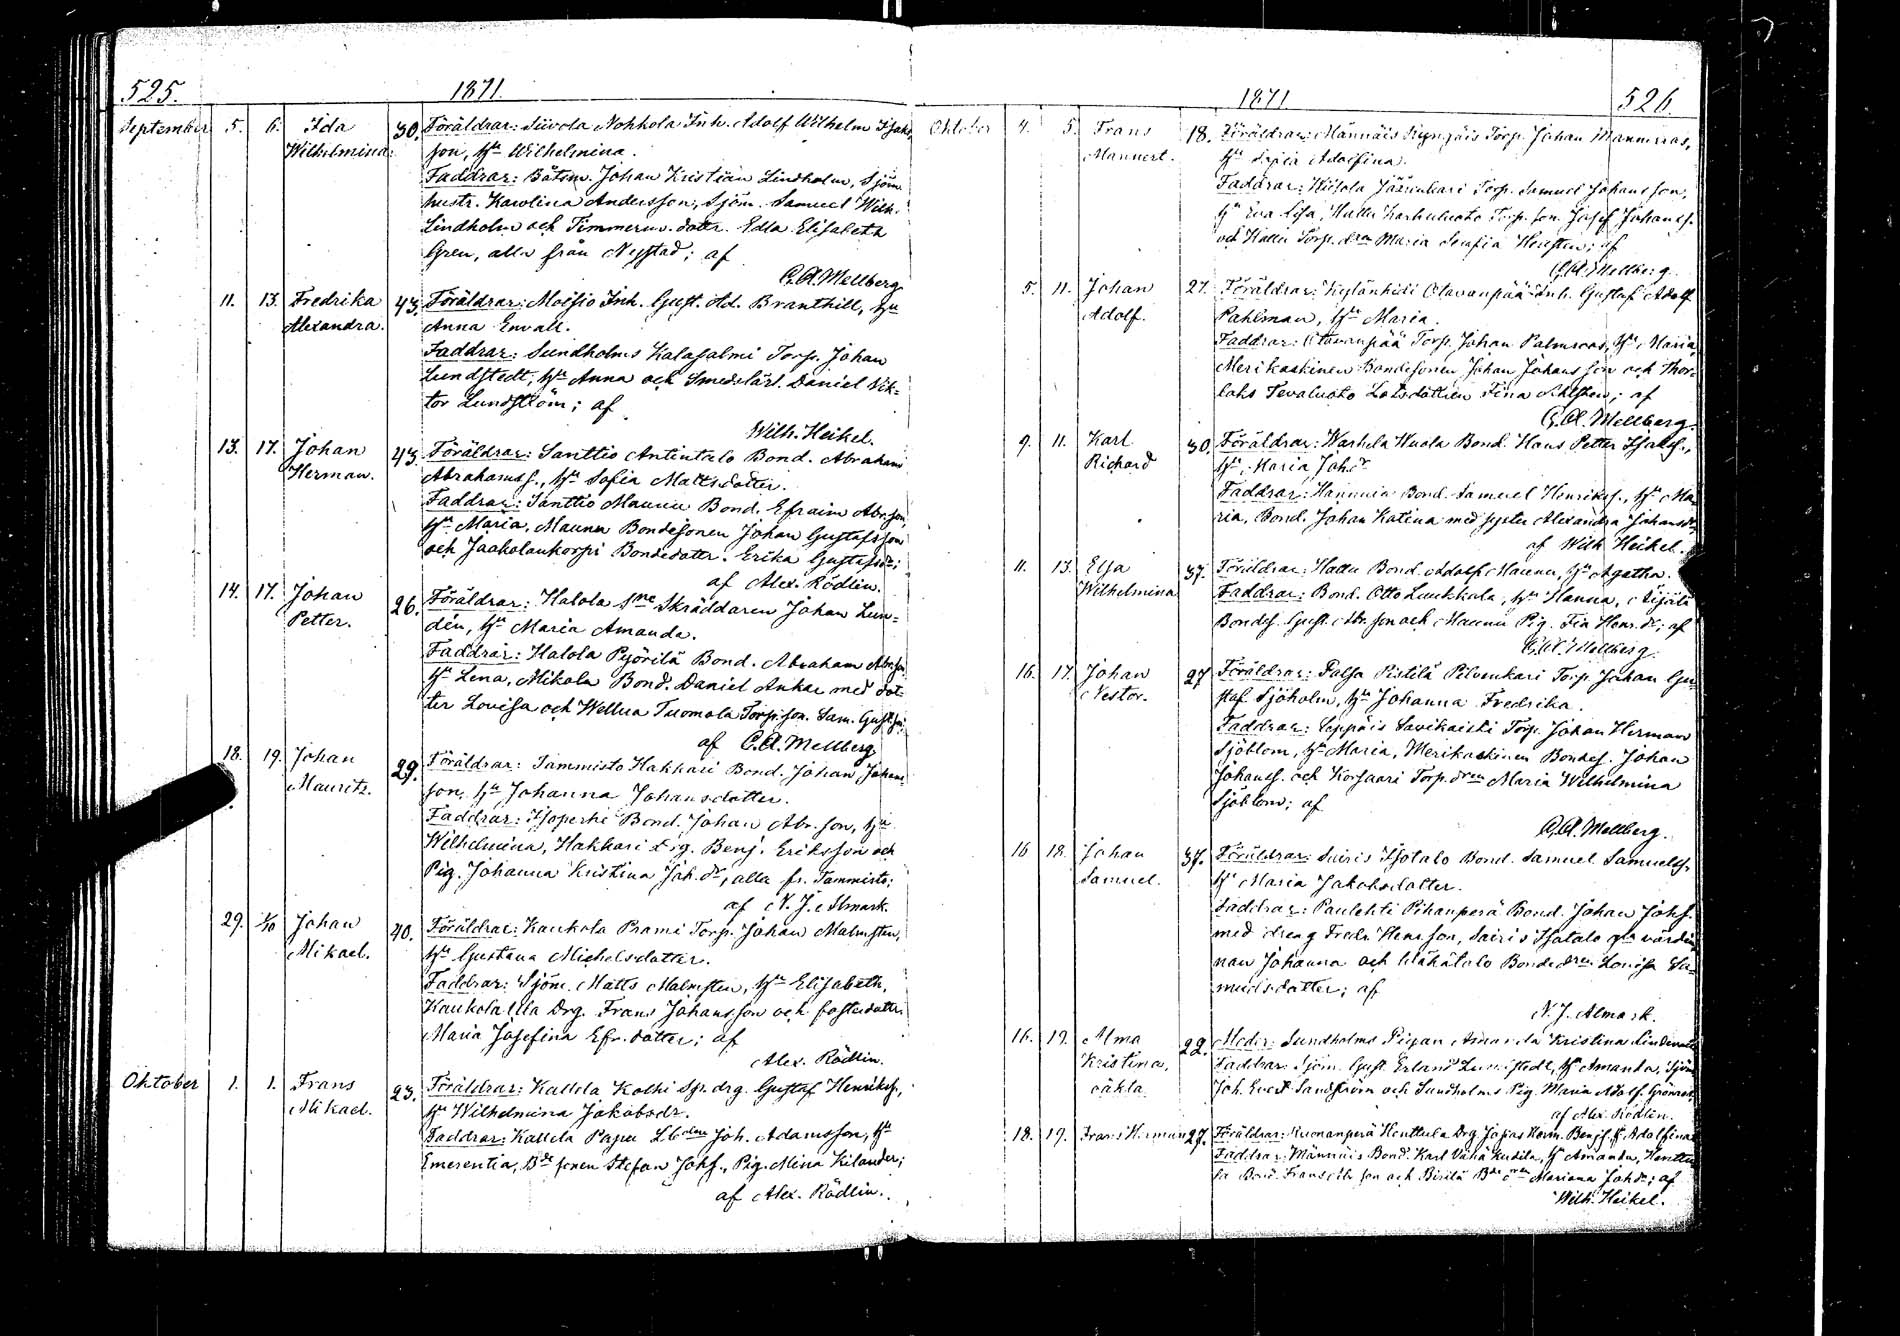 525.
1871.
September 5. 6. Ida 30. Föräldrar: Siivola Nohkola Inh. Adolf Wilhelm Isaks
Wilhelmina. son, Hu Wilhelmina.
Faddrar: Båtsm. Johan Kristian Lindholm, Sjöm.
hustr. Karolina Andersson, Sjöm. Samuel Wilh.
Lindholm och Timmerm. dottr. Edla Elisabeth
Gren, alla från Nystad; af
C.A. Mellberg
11. 13. Fredrika 43. Föräldrar: Moisio Inh. Gust. Ad. Branthill, Hu
Alexandra. Anna Envall.
Faddrar: Sundholms Kalasalmi Torp. Johan
Lundstedt, Hu Anna och Smedslärl. Daniel Vik-
tor Lundström; af
Wilh. Heikel.
13. 17. Johan 43. Föräldrar: Santtio Antintalo Bond. Abraham
Herman. Abrahamss., Hu Sofia Mattsdotter.
Faddrar: Santtio Maunu Bond. Efraim Abr.son,
Hu Maria, Maunu Bondesonen Johan Gustafsson
och Jaakolankorpi Bondedottr. Erika Gustafsdr;
af Alex. Rödlin.
14. 17. Johan 26. Föräldrar: Halola Sne Skräddaren Johan Lun-
Petter. dén, Hu Maria Amanda.
Faddrar: Halola Pyörilä Bond. Abraham Abr.son
Hu Lena, Mikola Bond. Daniel Ankar med dot-
ter Lovisa och Wellua Tuomola Torp.son. Sam. Gust.son;
af C.A. Mellberg
18. 19. Johan 29. Föräldrar: Tammisto Hakkari Bond. Johan Johans-
Mauritz. son, Hu Johanna Johansdotter.
Faddrar: Isoperhe Bond. Johan Abr.son, Hu
Wilhelmina, Hakkari Drg. Benj. Eriksson och
Pig. Johanna Kristina Joh.dr, alla fr. Tammisto;
af N. J. Almark.
29. 1/10 Johan 40. Föräldrar: Kaukola Prami Torp. Johan Malmsten,
Mikael. Hu Gustava Michelsdotter.
Faddrar: Sjöm. Matts Malmsten, Hu Elisabeth,
Kaukola Ulla Drg. Frans Johansson och fosterdottr.
Maria Josefina Efr.dotter; af
Alex. Rödlin.
Oktober 1. 1. Frans 23. Föräldrar: Kallela Kolhi Sp. drg. Gustaf Henrikss.,
Mikael. Hu Wilhelmina Jakobsdr.
Faddrar: Kallela Papu Joh. Adamsson, Hu
Emerentia, Bde sonen Stefan Johs., Pig. Mina Kilander;
af Alex. Rödlin.
1871
526.
Oktober 4. 5. Frans 18. Föräldrar: Männäis Torp. Johan Mannerros,
Mannert. Hu Adolfina.
Faddrar: Torp. Samuel Johansson,
Hu Eva Lisa, Hallu Karhuluoto Torp. son. Josef Johanss.
och Hallu Torp. dren Maria Serafia; af
C.A. Mellberg.
5. 11. Johan 27. Föräldrar: Kylänhidi Otavanpää Inh. Gustaf Adolf
Adolf. Pahlman, Hu Maria.
Faddrar: Otavanpää Torp. Johan Palmroos, Hu Maria,
Merikaskinen Bondesonen Johan Johansson och Thor-
laks Tevaluoto Lotsdottren Fina Ahlsten; af
C.A. Mellberg.
9. 11. Karl 30. Föräldrar: Warhela Wuola Bond. Hans Petter Isakss.,
Richard Hu Maria Joh.dr
Faddrar: Hannuia Bond. Samuel Henrikss., Hu Ma-
ria, Bond. Johan Katina med syster Alexandra Johansdr
af Wilh. Heikel.
11. 13. Elsa 37. Föräldrar: Hallu Bond. Adolf Maunu, Hu Agatha.
Wilhelmina Faddrar: Bond. Otto Laukkala, Hu Hanna, Äijälä
Bondes. Gust. Abr.son och Maunu Pig. Fia Henr.dr; af
C.A. Mellberg.
16. 17. Johan 27 Föräldrar: Palsa Pistilä Pilvenkari Torp. Johan Gu-
Nestor. staf Sjöholm, Hu Johanna Fredrika.
Faddrar: Seppäis Savikaisti Torp. Johan Herman
Sjöblom, Hu Maria, Merikaskinen Bondes. Johan
Johanss. och Korsaari Torp.dren Maria Wilhelmina
Sjöblom; af
C.A. Mellberg.
16 18. Johan 37. Föräldrar: Sairis Isotalo Bond. Samuel Samuelss.,
Samuel. Hu Maria Jakobsdotter.
Faddrar: Paulehti Pihanperä Bond. Johan Johs.
med dreng Fredr. Henrsson, Sairis Isotalo gla värdin-
nan Johanna och Wähätalo Bondedren Lovisa Sa-
muelsdotter; af
N. J. Almark.
16. 19. Alma 22. Moder: Sundholms Pigan Amanda Kristina
Kristina, Faddrar: Sjöm. Gust. Erland Lundstedt, Hu Amanda, Sjöm.
oäkta Joh. Evert Sandström och Sundholms Pig. Maria Adolf. Grönroos;
af Alex. Rödlin.
18. 19. Frans Herman 27. Föräldrar: Ruonanperä Henttula Drg Josias Herm. Benjs. Hu Adolfina
Faddrar: Männäis Bond. Karl Vähä Kustila, Hu Amanda, Henttu-
la Bond. Frans och Birilä Bde dren Mariana Joh.dr; af
Wilh. Heikel.